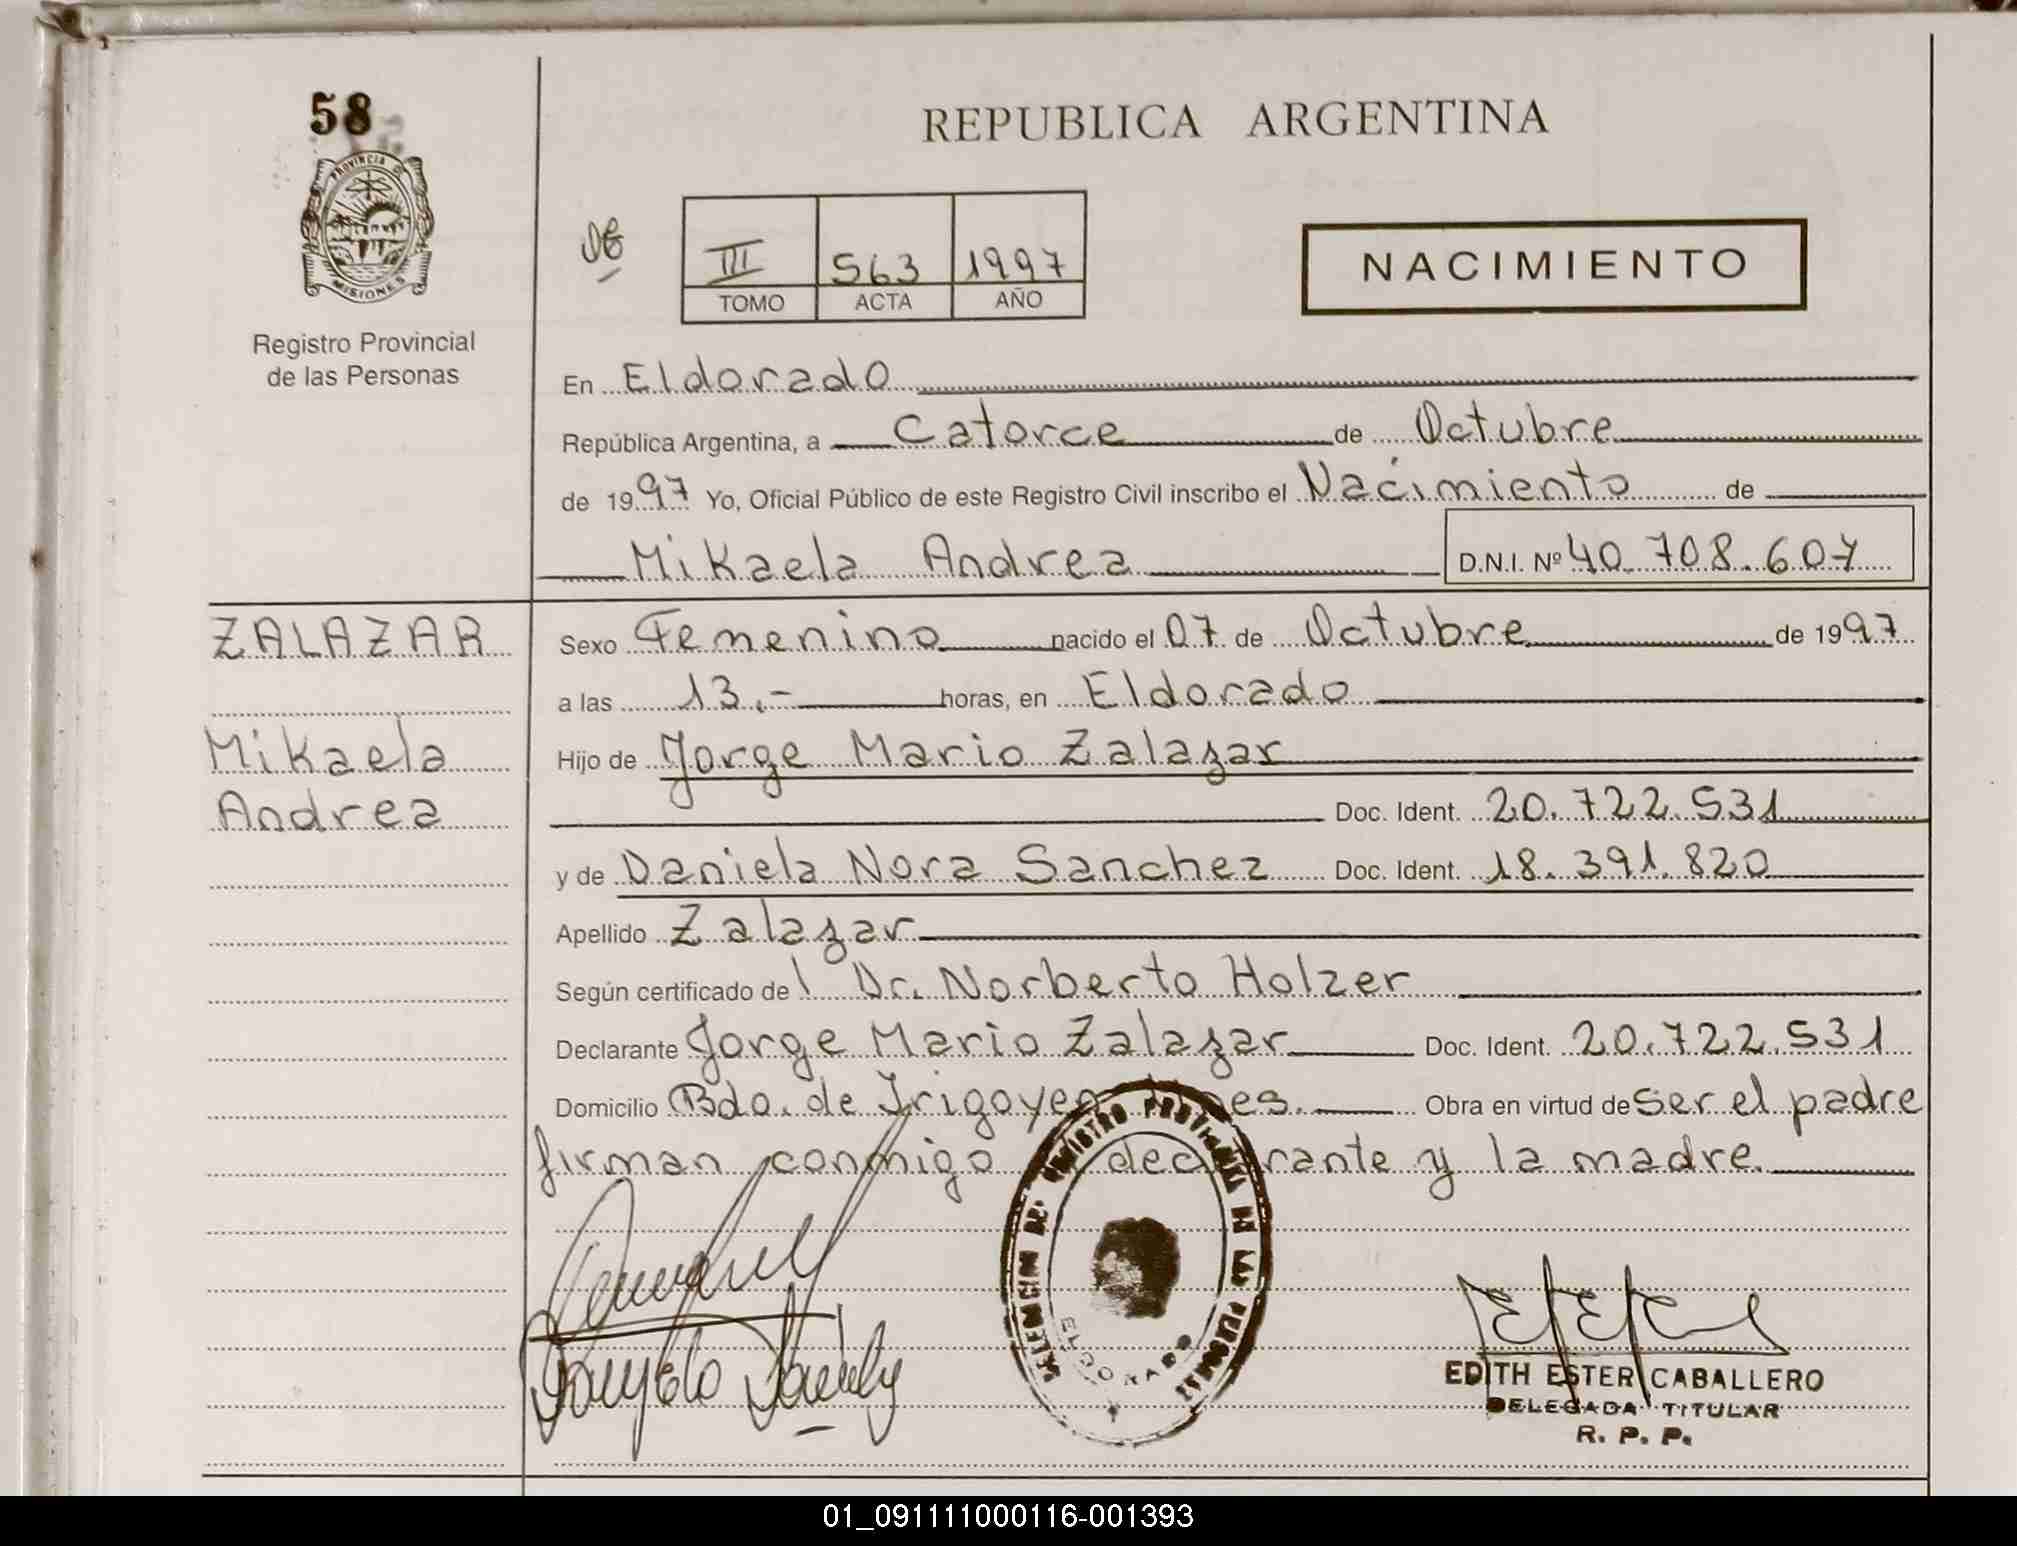 58
PROVINCIA DE
MISIONES
Registro Provincial
de las Personas
REPUBLICA ARGENTINA
III 563 1997
TOMO ACTA AÑO
NACIMIENTO
En Eldorado
República Argentina, a Catorce de Octubre
de 1997 Yo, Oficial Público de este Registro Civil inscribo el Nacimiento de
Mikaela Andrea D.N.I. Nº 40.708.607
ZALAZAR
Mikaela
Andrea
Sexo Femenino nacido el 07 de Octubre de 1997
a las 13.- horas, en Eldorado
Hijo de Jorge Mario Zalazar
Doc. Ident. 20.722.531
y de Daniela Nora Sanchez Doc. Ident. 18.391.820
Apellido Zalazar
Según certificado del Dr. Norberto Holzer
Declarante Jorge Mario Zalazar Doc. Ident. 20.722.531
Domicilio Bdo. de Irigoyen Obra en virtud de ser el padre
firman conmigo declarante y la madre.
ELDORADO
EDITH ESTER CABALLERO
DELEGADA TITULAR
R. P. P.
01_091111000116-001393